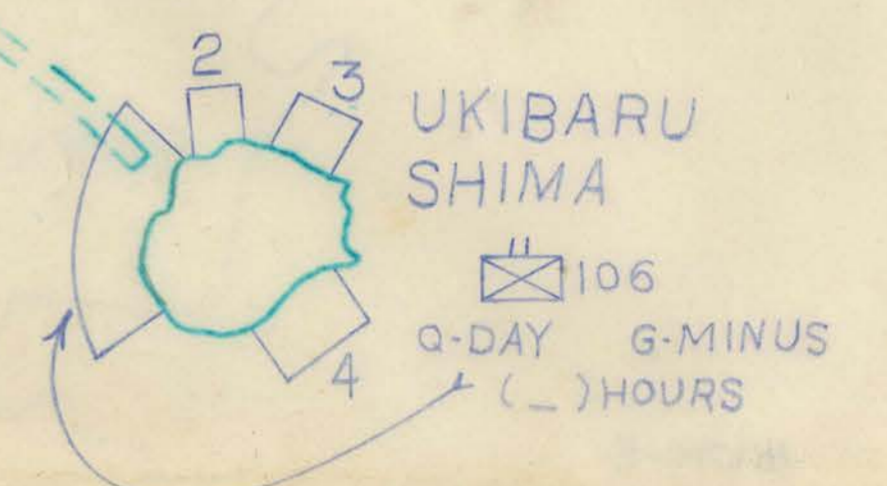 2
3
UKIBARU
SHIMA
106
Q-DAY G-MINUS
(_) HOURS
4